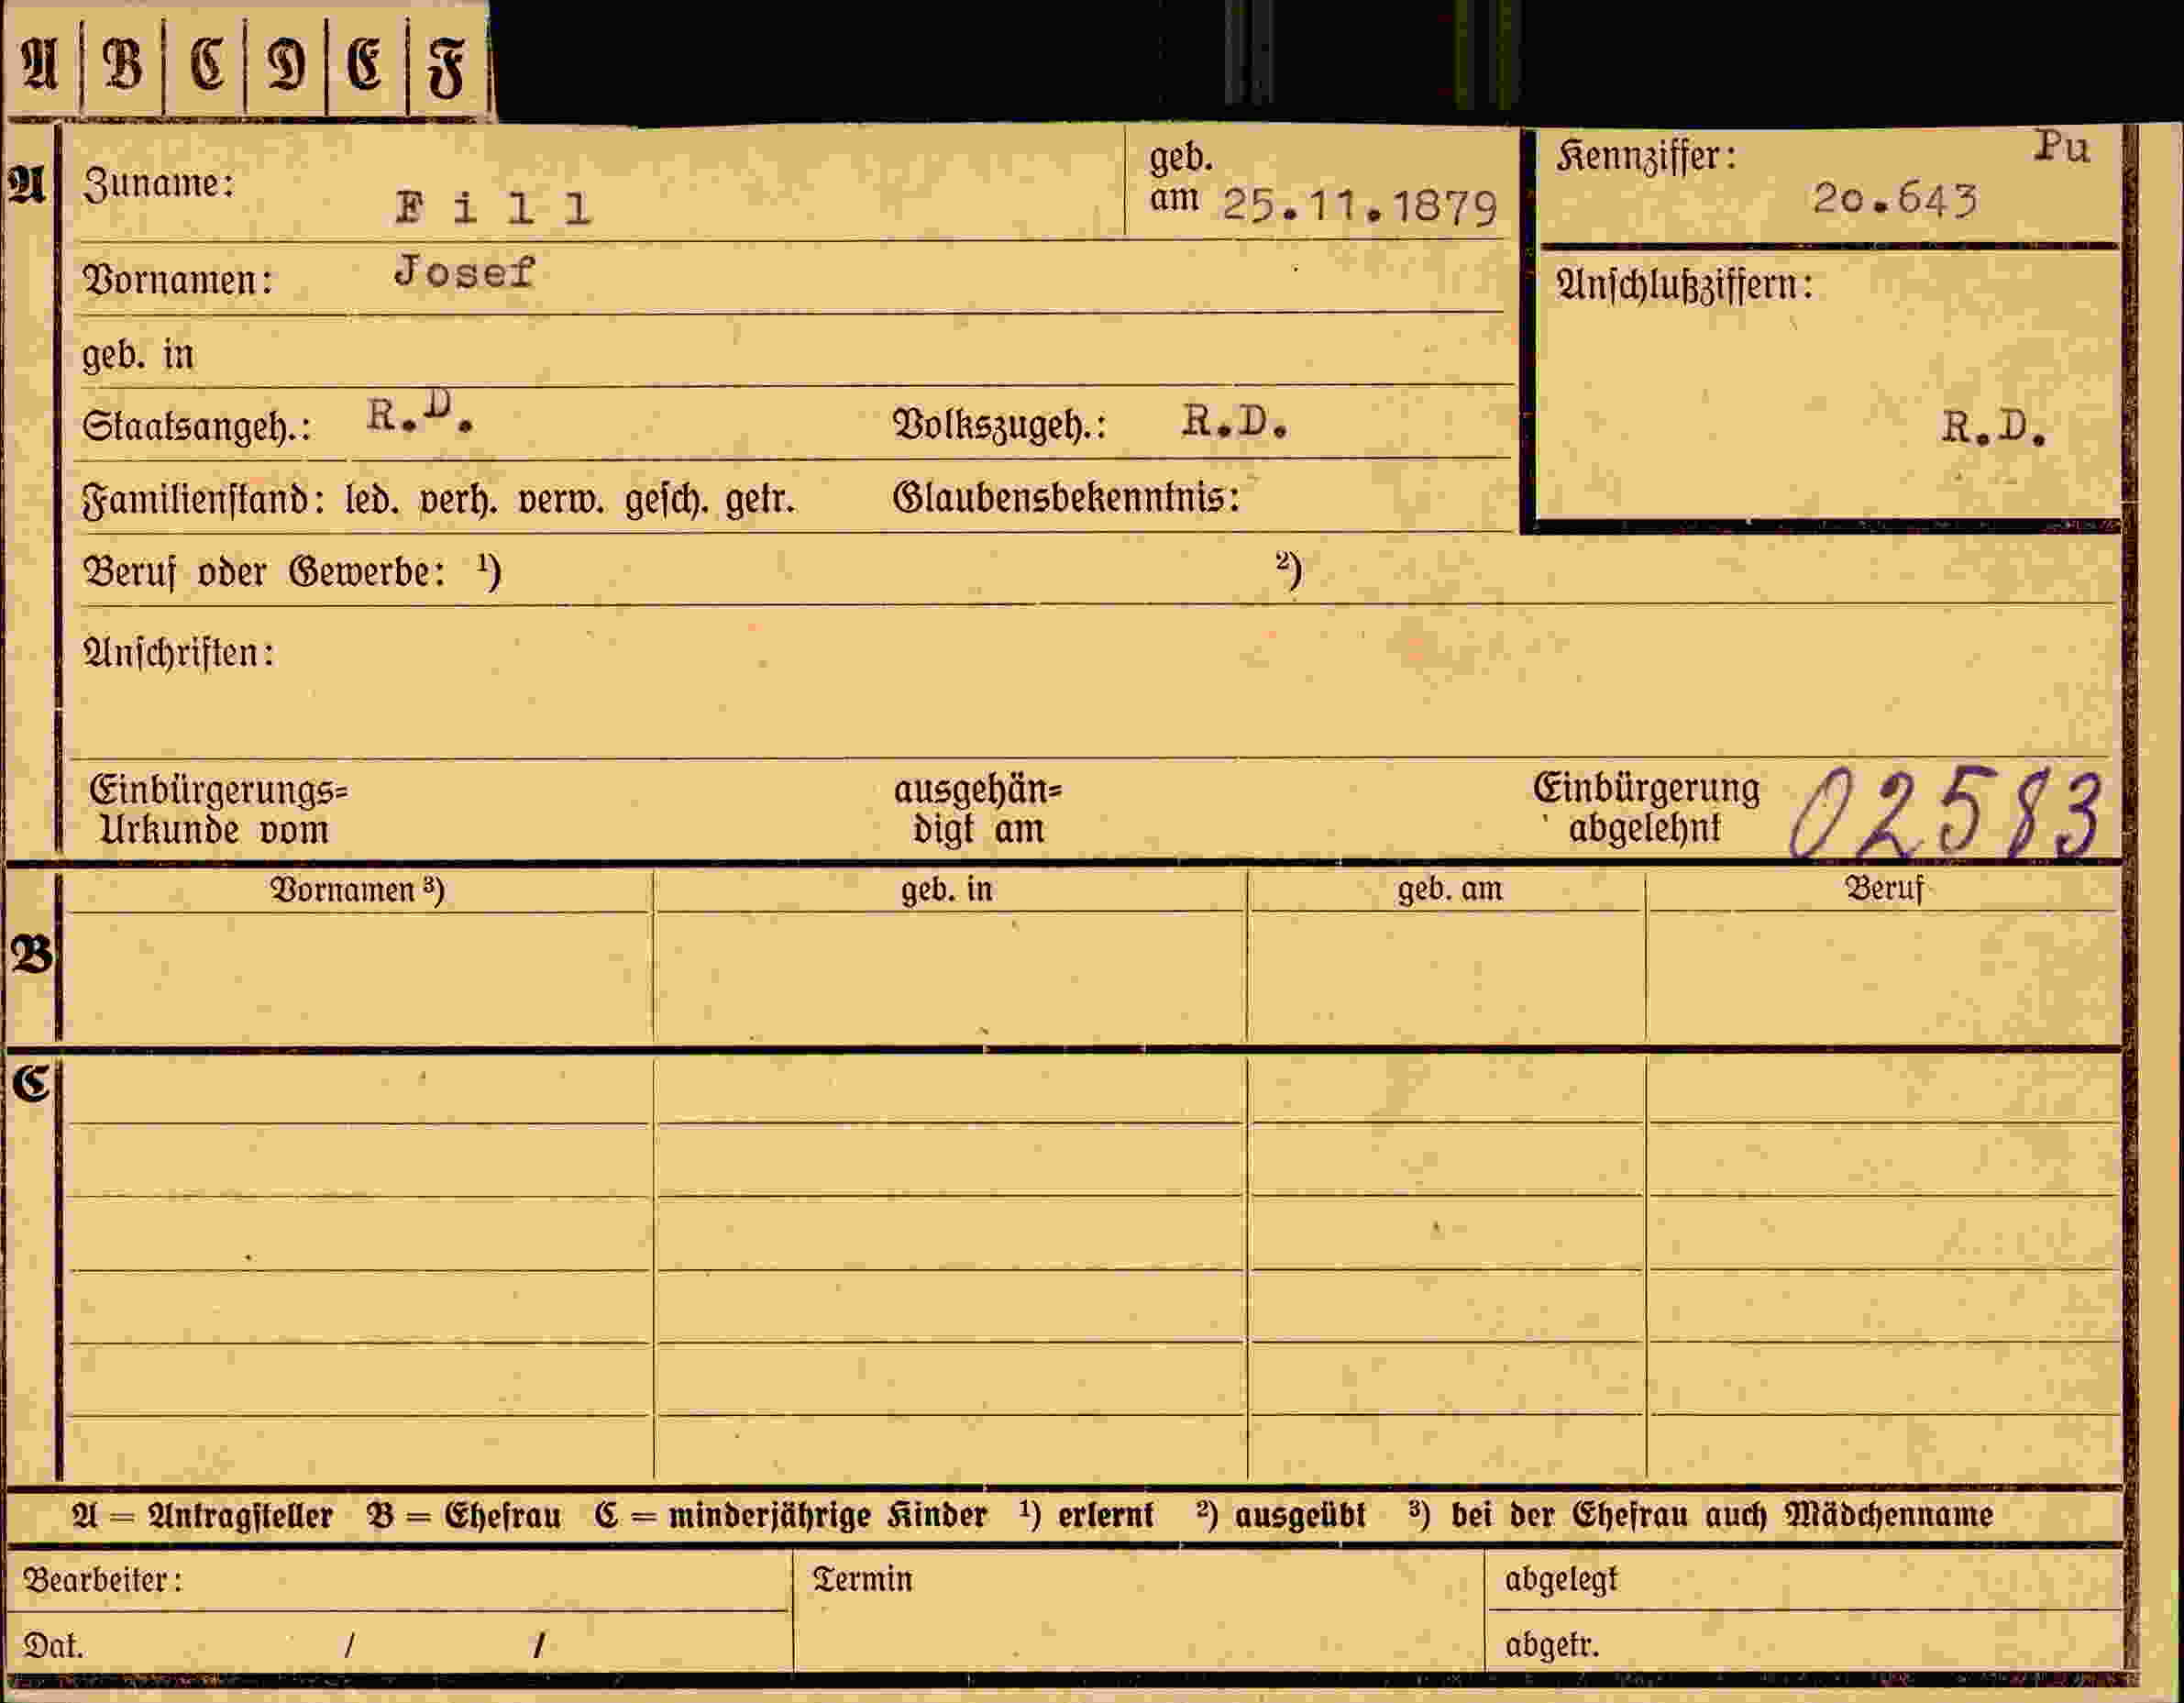 A B C D E F
A Zuname: Fill geb. am 25.11.1879
Kennziffer: Pu
20.643
Vornamen: Josef
Anschlußziffern:
R.D.
geb. in
Staatsangeh.: R.D. Volkszugeh.: R.D.
Familienstand: led. verh. verw. gesch. getr. Glaubensbekenntnis:
Beruf oder Gewerbe: ¹) ²)
Anschriften:
Einbürgerungs= ausgehän= Einbürgerung 02583
Urkunde vom digt am abgelehnt
Vornamen ³) geb. in geb. am Beruf
B
C
A = Antragsteller B = Ehefrau C = minderjährige Kinder ¹) erlernt ²) ausgeübt ³) bei der Ehefrau auch Mädchenname
Bearbeiter: Termin abgelegt
Dat. / / abgetr.